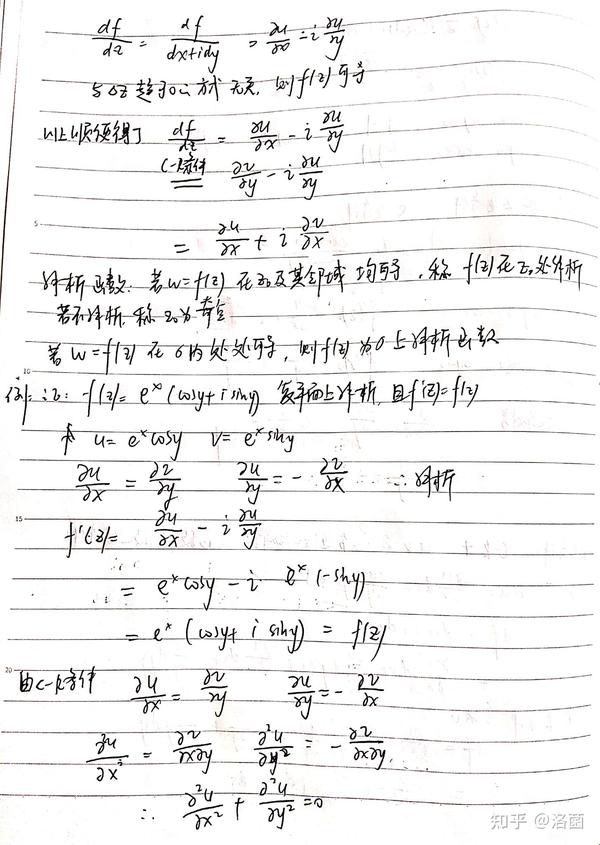 df/dz = df/(dx+idy) = ∂u/∂x - i ∂u/∂y
与Δz趋于0的方式无关, 则f(z)可导
以上顺便得了 df/dz = ∂u/∂x - i ∂u/∂y
C-R条件 ∂v/∂y - i ∂u/∂y
5
= ∂u/∂x + i ∂v/∂x
解析函数: 若w=f(z) 在z₀及其邻域 均可导, 称 f(z)在z₀处解析
若不解析, 称z₀为奇点
10
若 w=f(z) 在 σ内处处可导, 则f(z)为σ上解析函数
例: 证: f(z)= eˣ(cosy+i siny) 复平面上解析, 且f'(z)=f(z)
u= eˣcosy v= eˣsiny
∂u/∂x = ∂v/∂y ∂u/∂y = - ∂v/∂x ∴解析
15
f'(z)= ∂u/∂x - i ∂u/∂y
= eˣcosy - i eˣ(-siny)
= eˣ(cosy+ i siny) = f(z)
20
由C-R条件 ∂u/∂x = ∂v/∂y ∂u/∂y = - ∂v/∂x
∂²u/∂x² = ∂v/∂x∂y ∂²u/∂y² = - ∂v/∂x∂y
∴ ∂²u/∂x² + ∂²u/∂y² =0
知乎 @洛菌